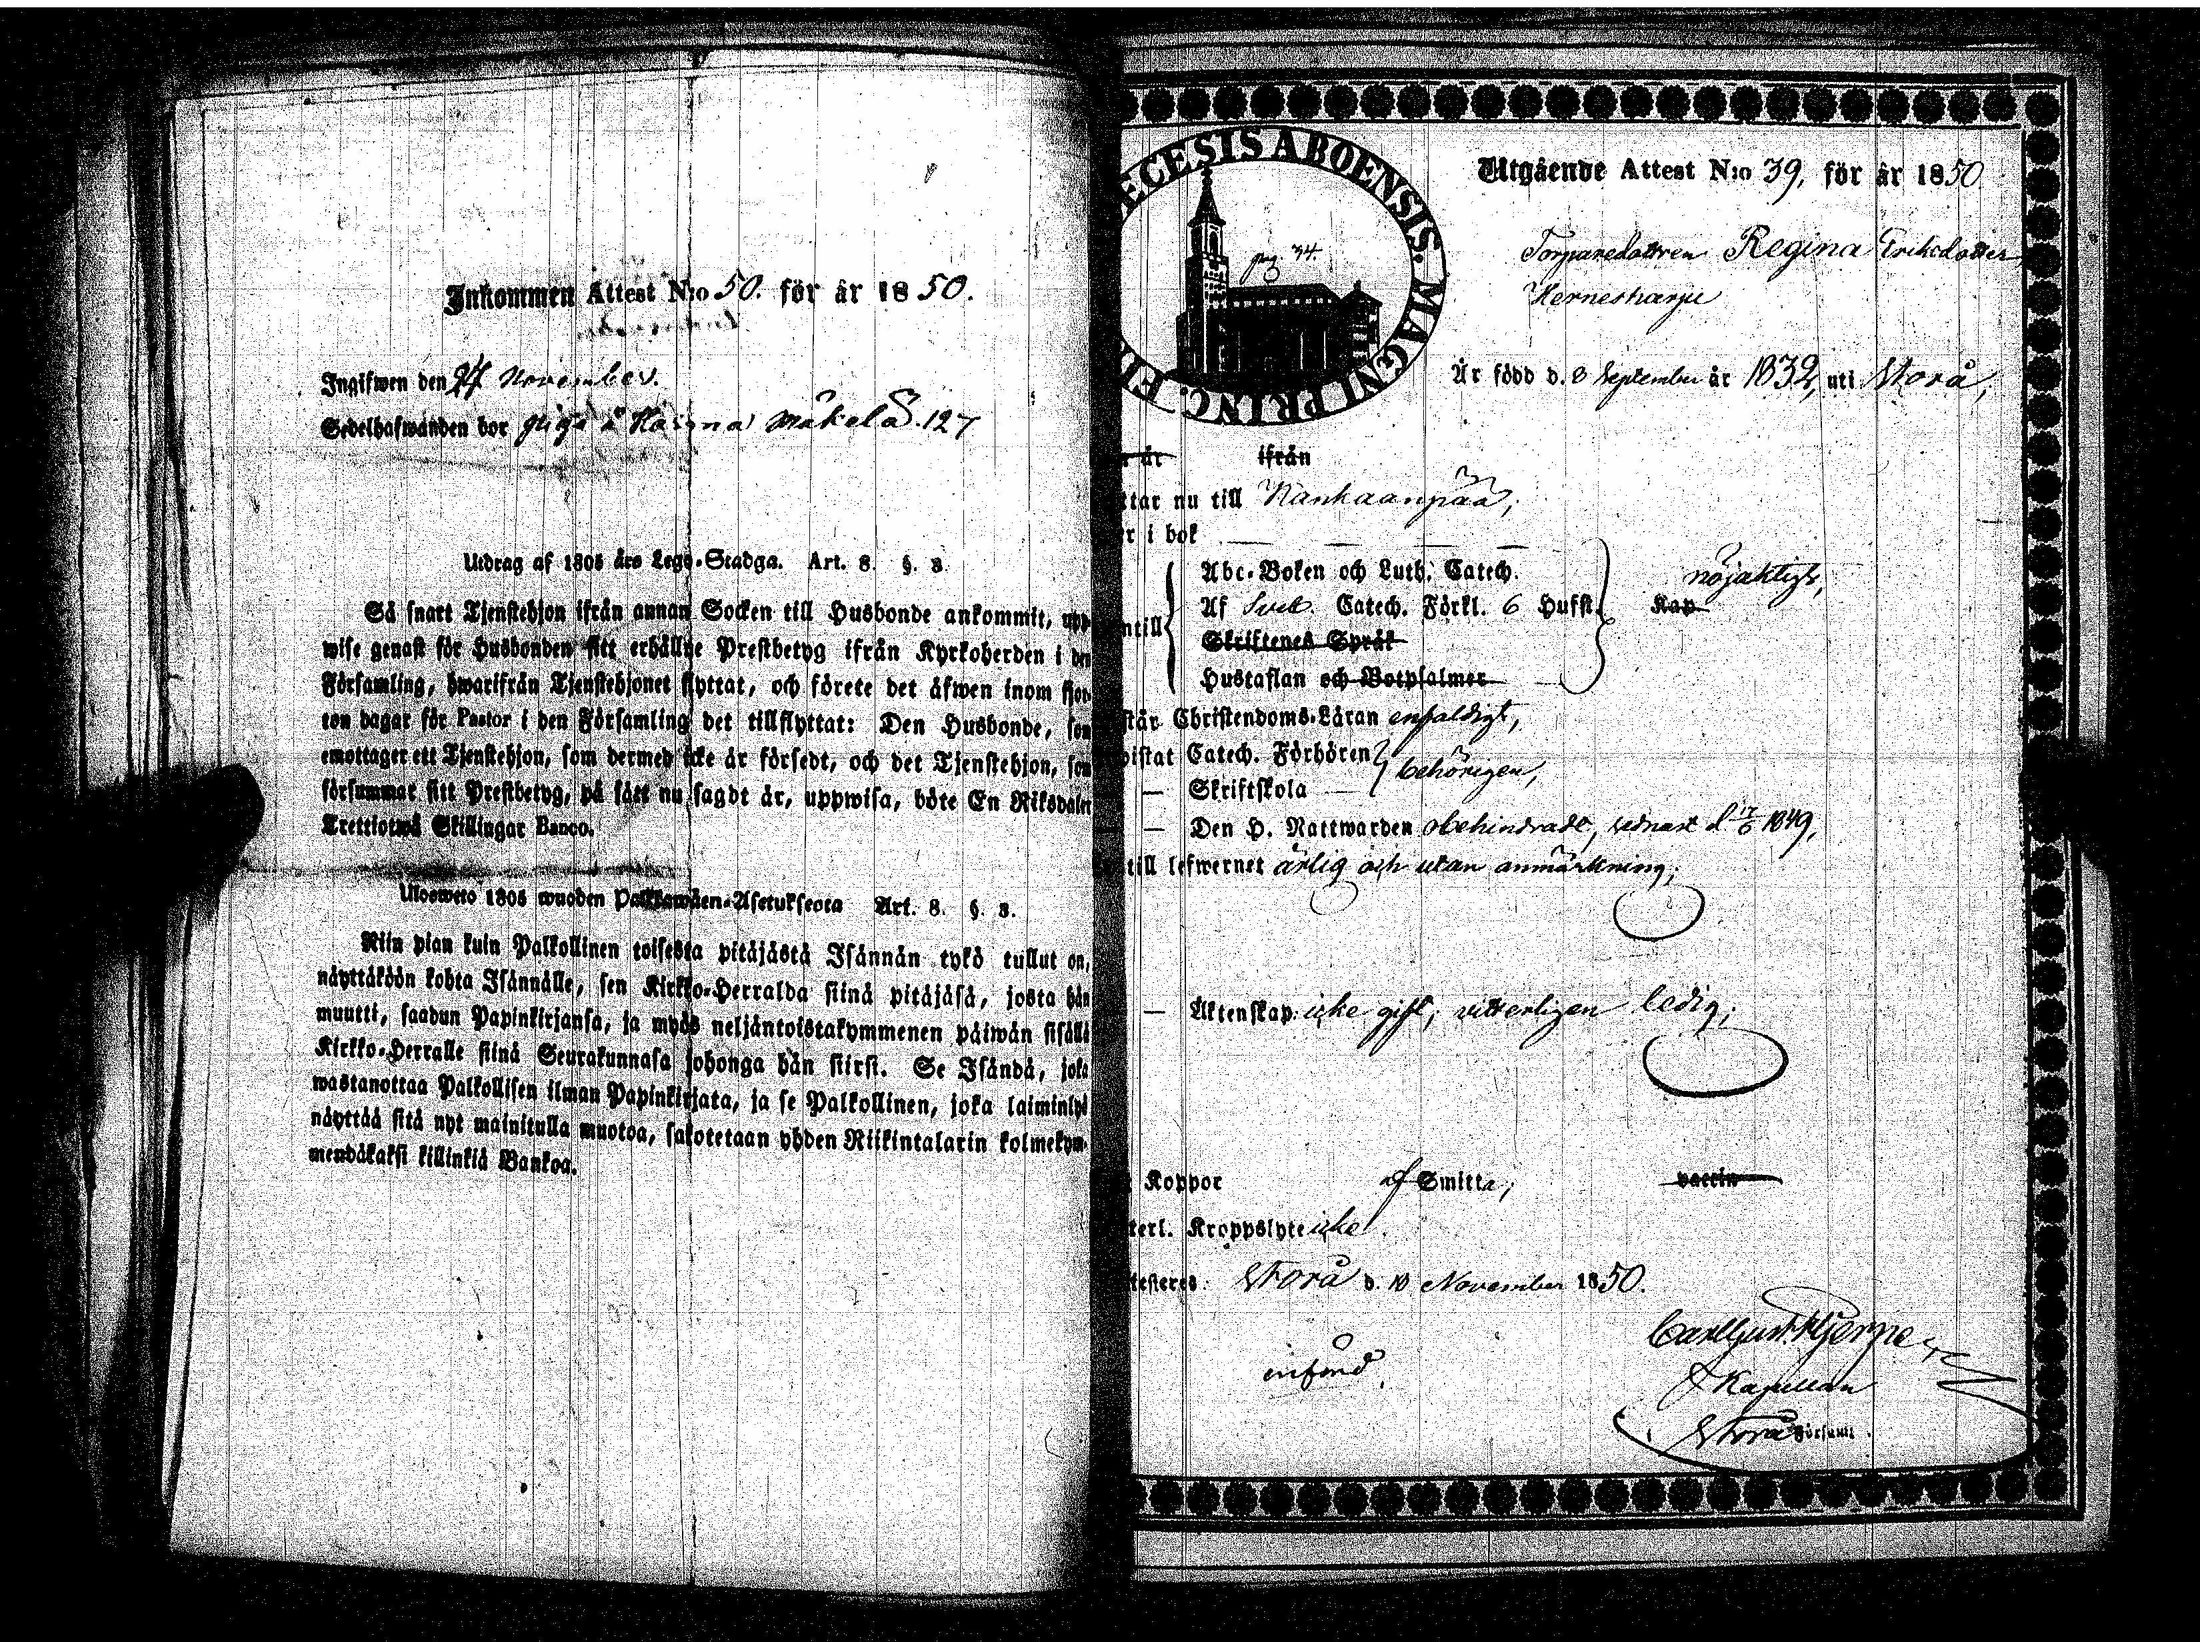 Inkommen Attest N:o 50. för år 1850.
Ingifwen den 27 November.
Sedelhafwanden bor på Mäkelä 127
Utdrag af 1805 års Lego-Stadga. Art. 8. §. 3.
Så snart Tjenstehjon ifrån annan Socken till Husbonde ankommit, upp-
wise genast för Husbonden sitt erhållne Prestbetyg ifrån Kyrkoherden i den
Församling, hwarifrån Tjenstehjonet flyttat, och förete det äfwen inom fjor-
ton dagar för Pastor i den Församling det tillflyttat: Den Husbonde, som
emottager ett Tjenstehjon, som dermed icke är försedt, och det Tjenstehjon, som
försummar sitt Prestbetyg, på sätt nu sagdt är, uppwisa, böte En Riksdaler
Trettiotwå Skillingar Banco.
Ulosweto 1805 wuoden Palkkawäen-Asetuksesta Art. 8. §. 3.
Niin pian kuin Palkollinen toisesta pitäjästä Isännän tykö tullut on,
näyttäköön kohta Isännälle, sen Kirkko-Herralda siinä pitäjäsä, josta hän
muutti, saadun Papinkirjansa, ja myös neljäntoistakymmenen päiwän sisällä
Kirkko-Herralle siinä Seurakunnasa johonga hän siirsi. Se Isändä, joka
wastanottaa Palkollisen ilman Papinkirjata, ja se Palkollinen, joka laiminlyö
näyttää sitä nyt mainitulla muotoa, sakotetaan yhden Riikintalarin kolmekym-
mendäkaksi killinkiä Bankoa.
ECESIS ABOENSIS. MAGNI PRINC. FI
pag 34.
Utgående Attest N:o 39, för år 1850
Torparedottren Regina Eriksdotter
Kerneskarju
Är född d. 8 September år 1832, uti Storå,
r år ifrån
ttar nu till Kankaanpää;
r i bok
ntill
Abc-Boken och Luth. Catech.
Af Sveb. Catech. Förkl. 6 Hufst.
Skriftenes Språk
Hustaflan och Botpsalmer
nöjaktigt,
Kap
står Christendoms-Läran enfaldigt,
vistat Catech. Förhören
— Skriftskola
behörigen,
— Den H. Nattwarden obehindrad, sednast d 17/6 1849,
till lefwernet ärlig och utan anmärkning;
— Äktenskap: icke gift, vitterligen ledig;
Koppor af Smitta; vaccin
terl. Kroppslyte icke.
testeres Storå d. 10 November 1850.
införd.
Carl Gust. Hjerpe
Kapellan
Storå Församl.